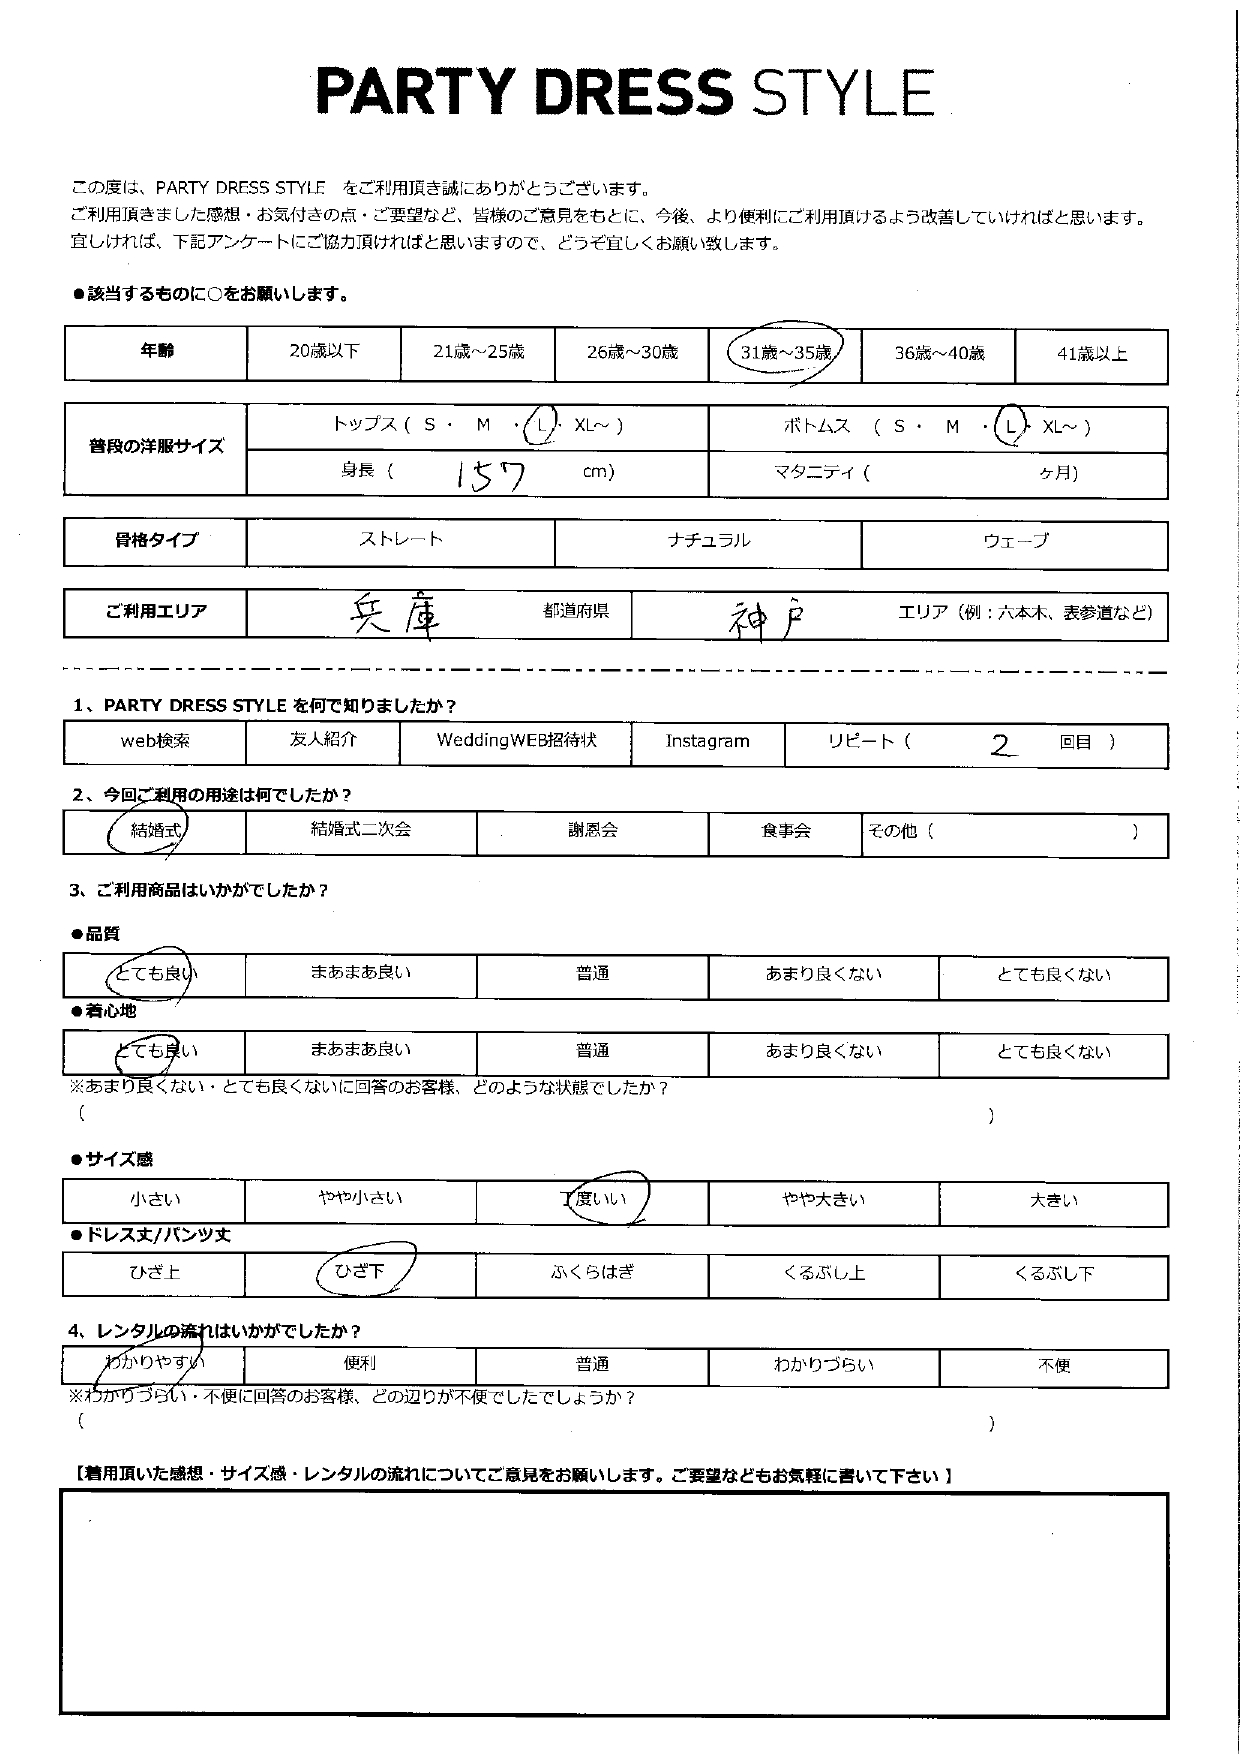 PARTY DRESS STYLE
この度は、PARTY DRESS STYLE をご利用頂き誠にありがとうございます。
ご利用頂きました感想・お気付きの点・ご要望など、皆様のご意見をもとに、今後、より便利にご利用頂けるよう改善していければと思います。
宜しければ、下記アンケートにご協力頂ければと思いますので、どうぞ宜しくお願い致します。
●該当するものに○をお願いします。
年齢 20歳以下 21歳～25歳 26歳～30歳 31歳～35歳 36歳～40歳 41歳以上
普段の洋服サイズ トップス ( S ・ M ・ L ・ XL～ ) ボトムス ( S ・ M ・ L ・ XL～ )
身長 ( 157 cm) マタニティ ( ヶ月)
骨格タイプ ストレート ナチュラル ウェーブ
ご利用エリア 兵庫 都道府県 神戸 エリア（例：六本木、表参道など）
1、PARTY DRESS STYLE を何で知りましたか？
web検索 友人紹介 WeddingWEB招待状 Instagram リピート ( 2 回目 )
2、今回ご利用の用途は何でしたか？
結婚式 結婚式二次会 謝恩会 食事会 その他 ( )
3、ご利用商品はいかがでしたか？
●品質
とても良い まあまあ良い 普通 あまり良くない とても良くない
●着心地
とても良い まあまあ良い 普通 あまり良くない とても良くない
※あまり良くない・とても良くないに回答のお客様、どのような状態でしたか？
( )
●サイズ感
小さい やや小さい 丁度いい やや大きい 大きい
●ドレス丈/パンツ丈
ひざ上 ひざ下 ふくらはぎ くるぶし上 くるぶし下
4、レンタルの流れはいかがでしたか？
わかりやすい 便利 普通 わかりづらい 不便
※わかりづらい・不便に回答のお客様、どの辺りが不便でしたでしょうか？
( )
【着用頂いた感想・サイズ感・レンタルの流れについてご意見をお願いします。ご要望などもお気軽に書いて下さい】